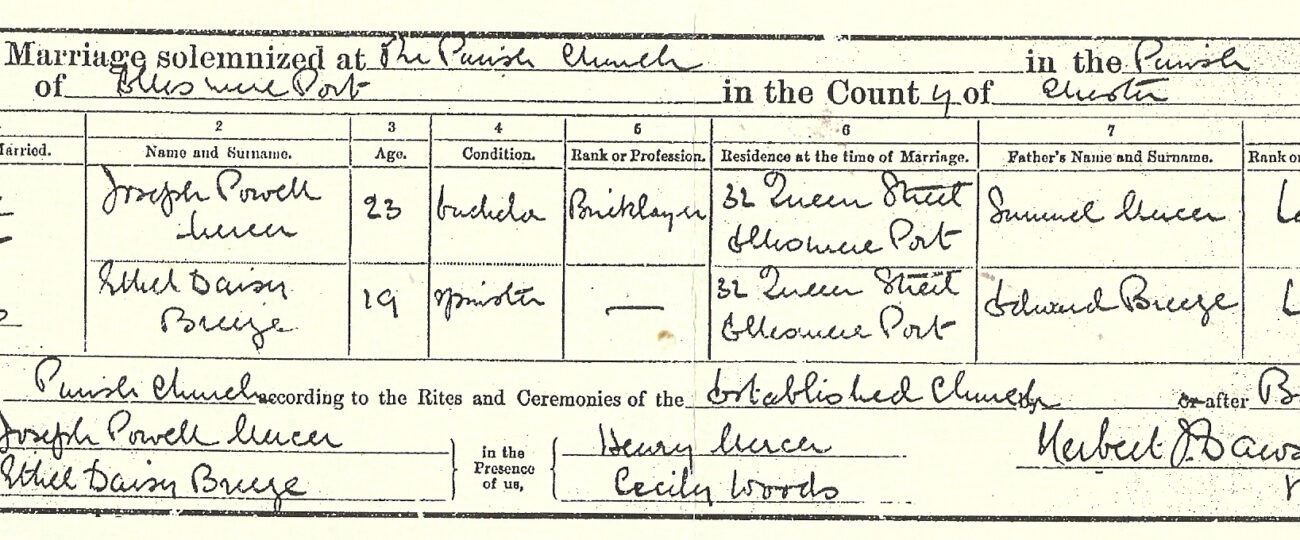 Marriage solemnized at The Parish Church in the Parish
of Ellesmere Port in the County of Chester
2 3 4 5 6 7
Married. Name and Surname. Age. Condition. Rank or Profession. Residence at the time of Marriage. Father's Name and Surname. Rank or
Joseph Powell Mercer 23 bachelor Bricklayer 32 Queen Street Ellesmere Port Samuel Mercer
Ethel Daisy Breeze 19 spinster — 32 Queen Street Ellesmere Port Edward Breeze
Parish Church according to the Rites and Ceremonies of the Established Church by or after B
Joseph Powell Mercer in the Presence of us, Henry Mercer Herbert J. Daws
Ethel Daisy Breeze Cecily Woods